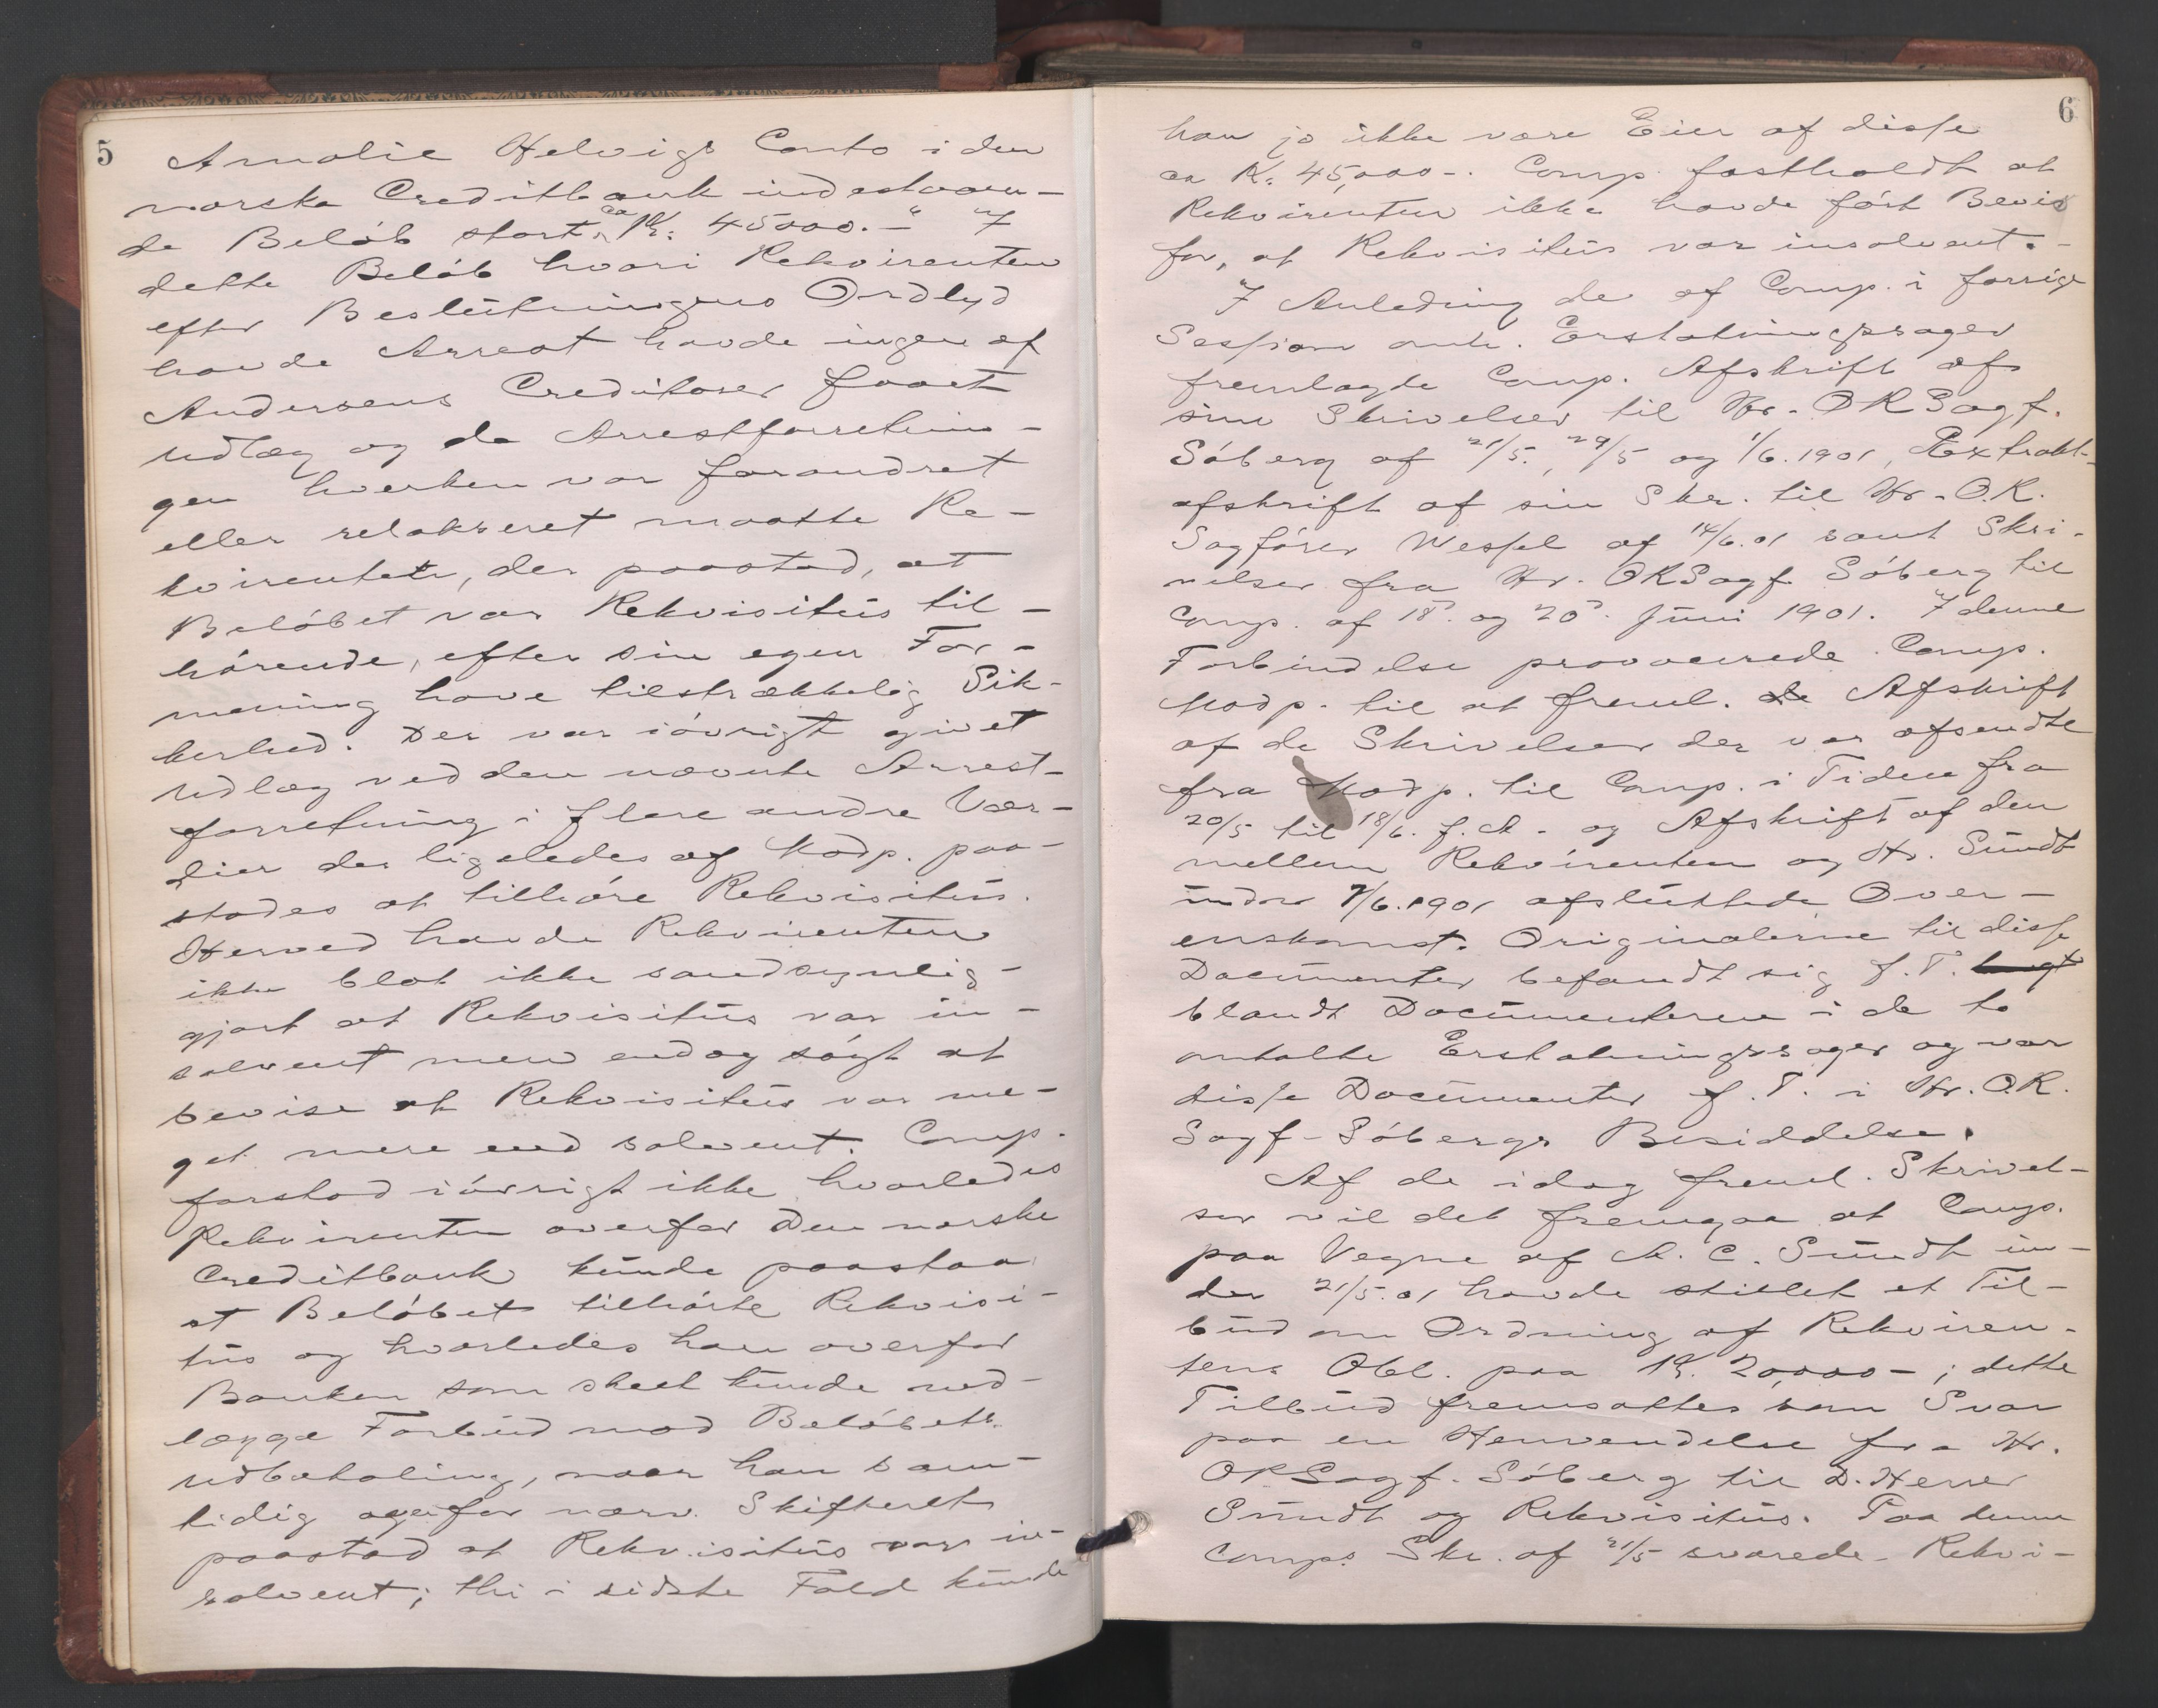 5
Amalie Helvigs Conto i den
norske Creditbank indestaaen-
de Beløb stort ca Kr. 45000.-" I
dette Beløb hvori Rekvirenten
efter Beslutningens Ordlyd
havde Arrest havde ingen af
Andersens Creditorer faaet
Udlæg og da Arrestforretnin-
gen hverken var forandret
eller relakseret maatte Re-
kvirenten, der paastod, at
Beløbet var Rekvisitus til-
hørende, efter sin egen For-
mening have tilstrækkelig Sik-
kerhed. Der var iøvrigt givet
Udlæg ved den nævnte Arrest-
forretning i flere andre Vær-
dier der ligeledes af Modp. paa-
stodes at tilhøre Rekvisitus.
Herved havde Rekvirenten
ikke blot ikke sandsynlig-
gjort at Rekvisitus var in-
solvent men endog søgt at
bevise at Rekvisitus var me-
get mere end solvent. Comp.
forstod iøvrigt ikke hvorledes
Rekvirenten overfor Den norske
Creditbank kunde paastaa
at Beløbet tilhørte Rekvisi-
tus og hvorledes han overfor
Banken som skeet kunde ned-
lægge Forbud mod Beløbets
Udbetaling, naar han sam-
tidig overfor nærv. Skifteret
paastod at Rekvisitus var in-
solvent; thi i sidste Fald kunde
6
han jo ikke være Eier af disse
ca Kr. 45,000-. Comp. fastholdt at
Rekvirenten ikke havde ført Bevis
for, at Rekvisitus var insolvent.-
I Anledning de af Comp. i forrige
Session omh. Erstatningssager
fremlagde Comp. Afskrift af
sine Skrivelser til Hr. OKSagf.
Søberg af 21/5., 29/5 og 1/6.1901, Extrakt-
afskrift af sin Skr. til Hr. O.R.
Sagfører Wessel af 14/6.01 samt Skri-
velser fra Hr. ORSagf. Søberg til
Comp. af 18. og 20. Juni 1901. I denne
Forbindelse provocerede Comp.
Modp. til at freml. de Afskrift
af de Skrivelser der var afsendte
fra Modp. til Comp. i Tiden fra
20/5 til 18/6. f.A. og Afskrift af den
mellem Rekvirenten og Hr. Sundt
under 7/6.1901 afsluttede Over-
enskomst. Originalerne til disse
Documenter befandt sig f.T.
blandt Documenterne i de to
omtalte Erstatningssager og var
disse Documenter f.T. i Hr. O.R.
Sagf. Søbergs Besiddelse.
Af de idag freml. Skrivel-
ser vil det fremgaa at Comp.
paa Vegne af A. C. Sundt un-
der 21/5.01 havde stillet et Til-
bud om Ordning af Rekviren-
tens Obl. paa Kr. 20,000-; dette
Tilbud fremsattes som Svar
paa en Henvendelse fra Hr.
ORSagf. Søberg til D.Herrer
Sundt og Rekvisitus. Paa denne
Comps Skr. af 21/5 svarede Rekvi-